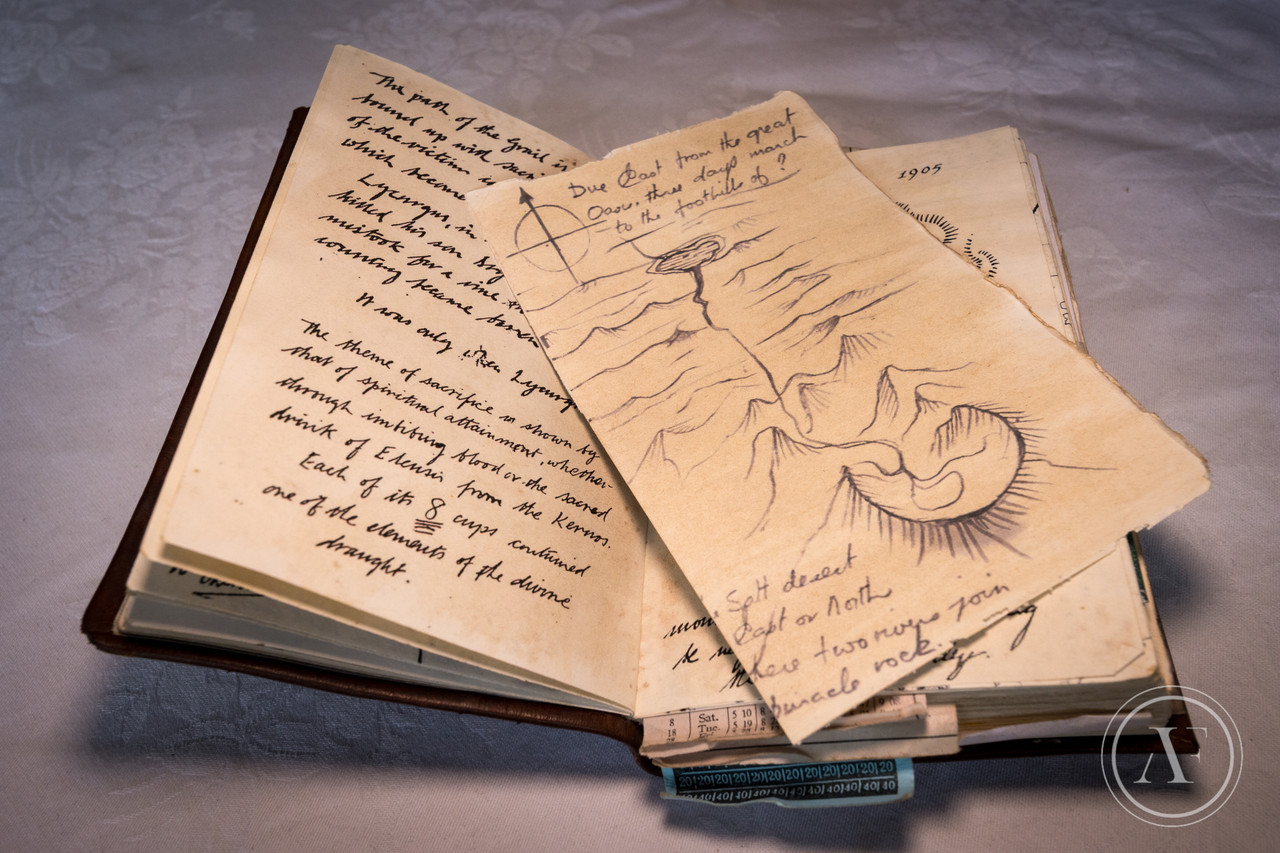 The path of the Grail is
bound up with
of the victim
which become
Lycurgus, in
killed his son
mistook for a vine
country became barren
It was only when Lycurg
The theme of sacrifice is shown by
that of spiritual attainment, whether
through imbibing blood or the sacred
drink of Eleusis from the Kernos.
Each of its 8 cups contained
one of the elements of the divine
draught.
Due East from the great
Oasis, three days march
to the foothills of?
Salt desert
East or North
where two rivers join
pinacle rock.
1905
be
8 Sat. 5 10 8
18 Tue. 5 19
20 20 20 20 20 20 20 20 20 20
40 40 40 40 40 40 40 40 40 40
AF